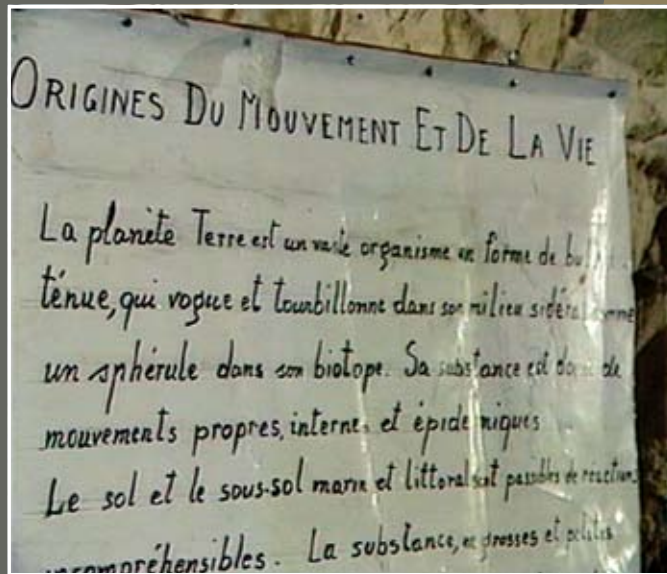 ORIGINES DU MOUVEMENT ET DE LA VIE
La planète Terre est un vaste organisme en forme de
ténue, qui vogue et tourbillonne dans son milieu sidéral comme
un sphérule dans son biotope. Sa substance est de
mouvements propres, internes et épidermiques
Le sol et le sous-sol marin et littoral sont passibles de réactions
incompréhensibles. La substance, et